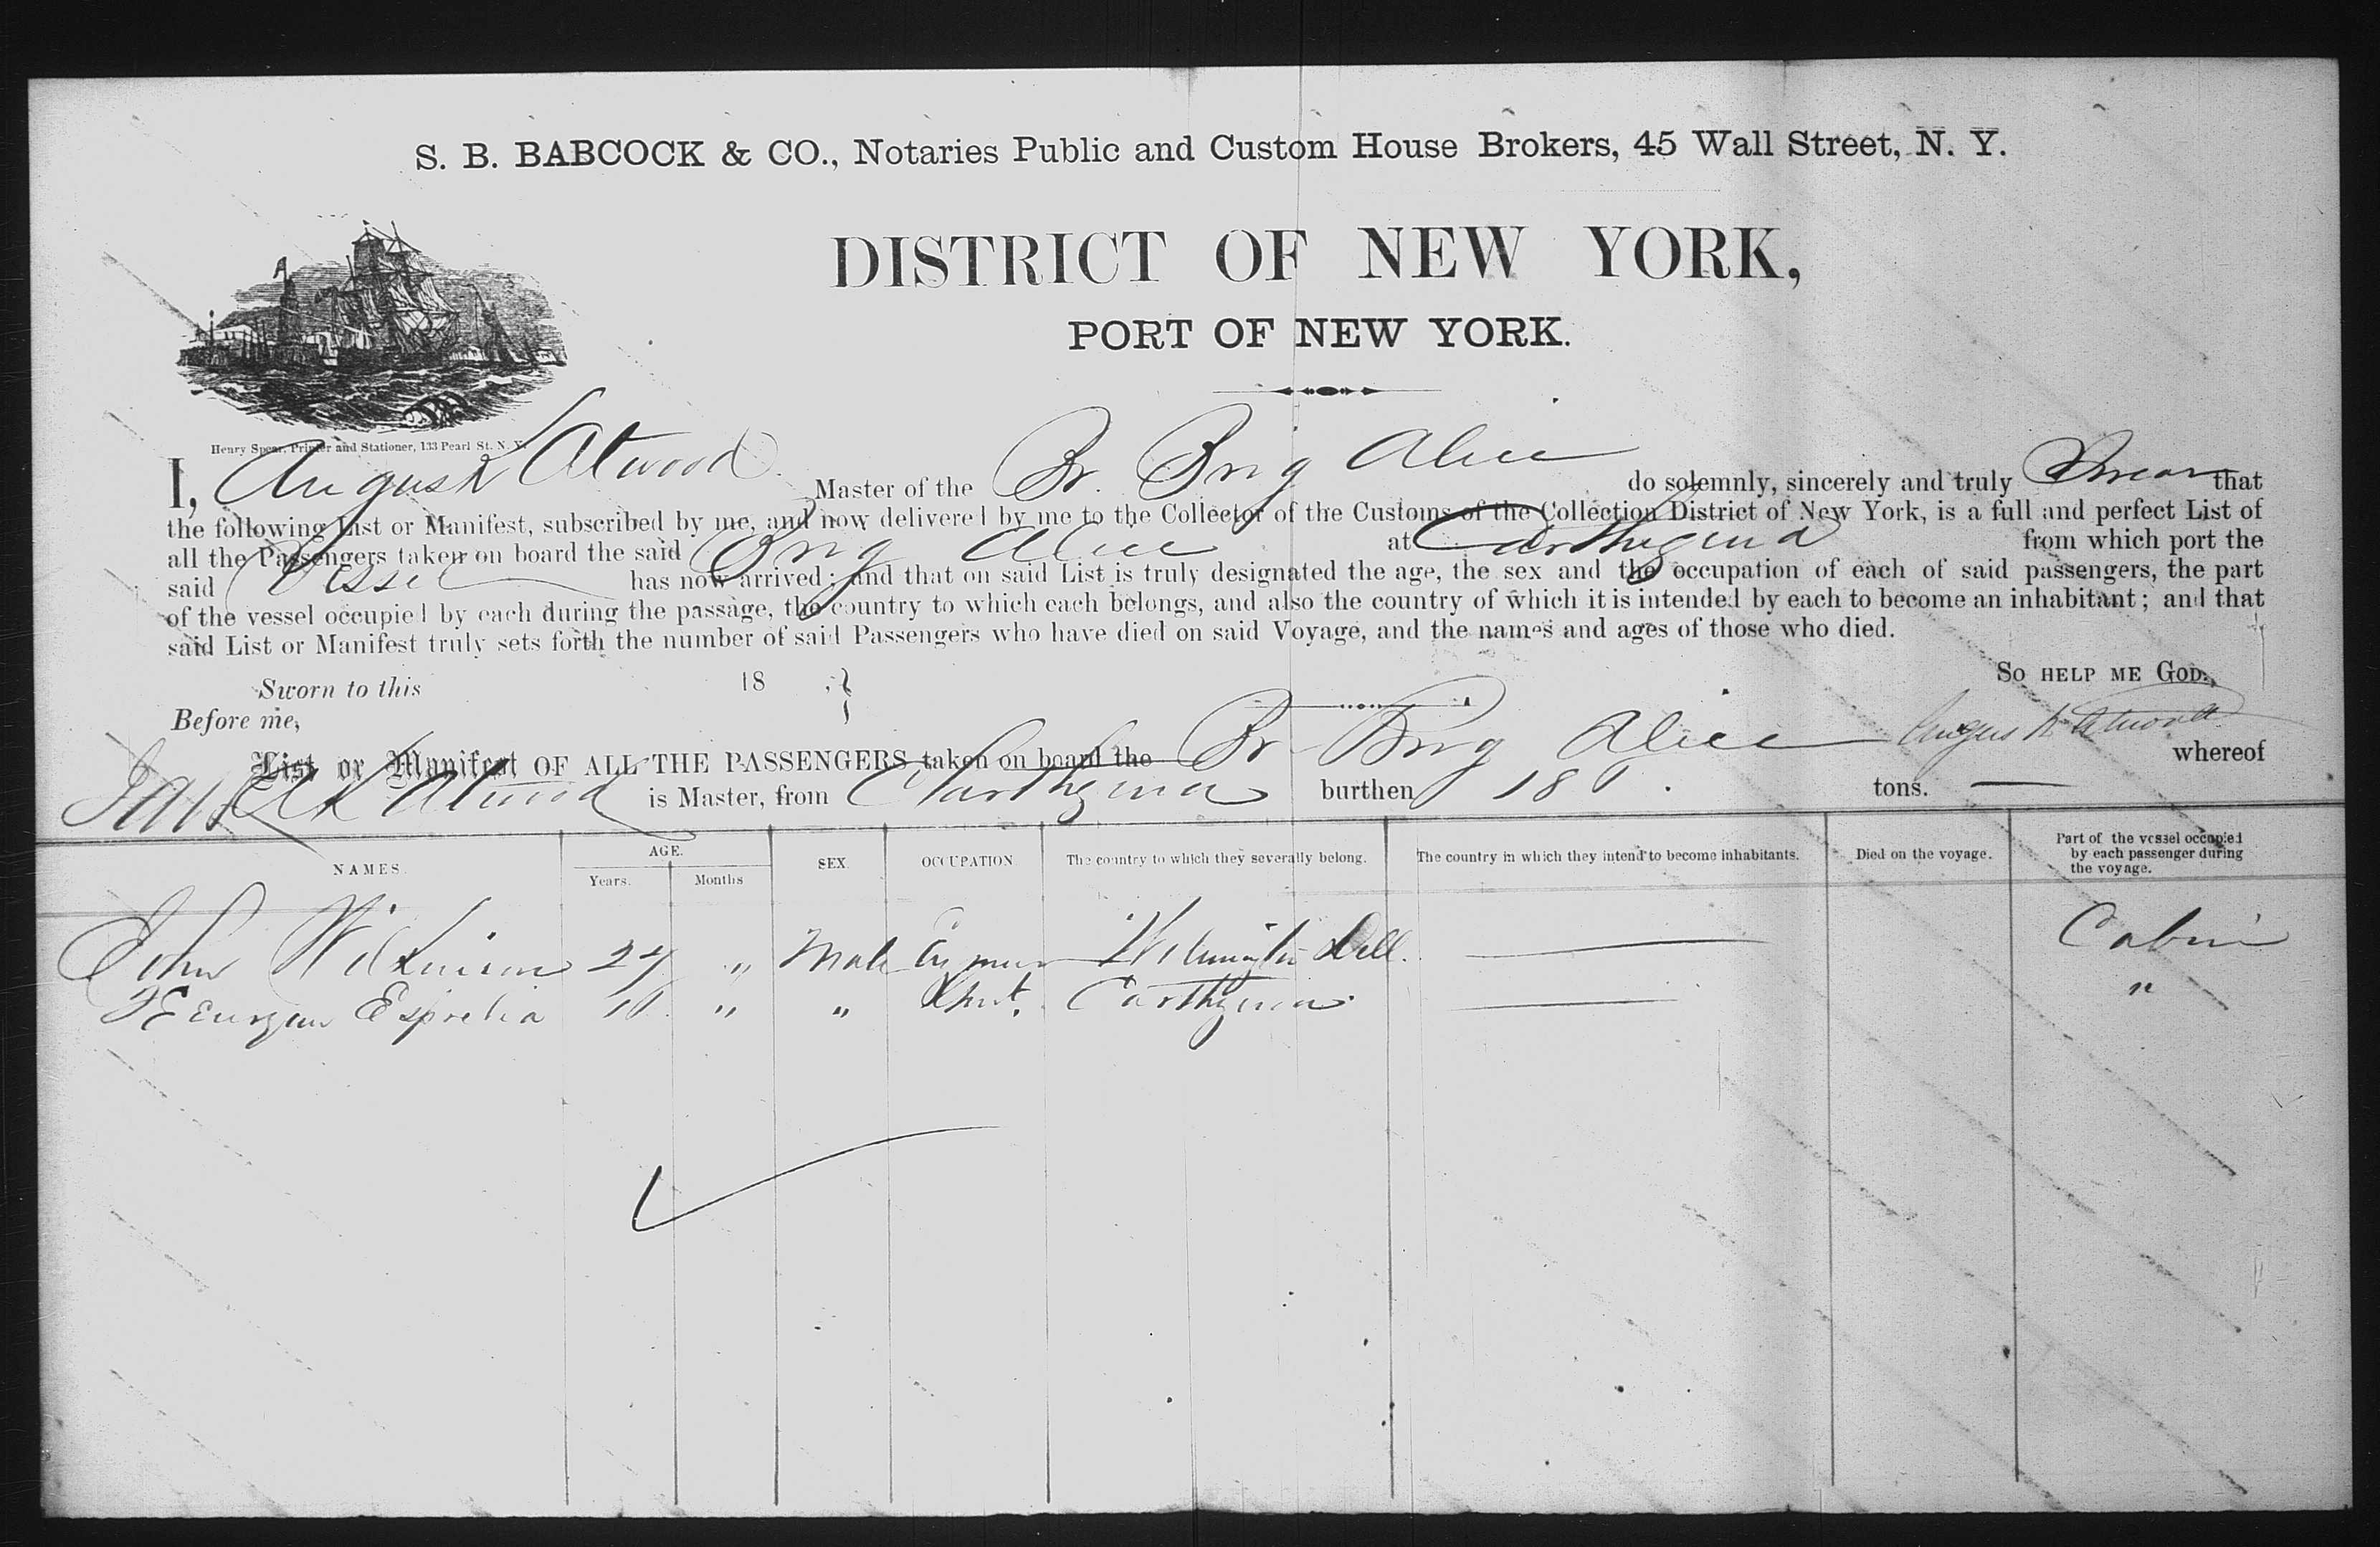 S. B. BABCOCK & CO., Notaries Public and Custom House Brokers, 45 Wall Street, N. Y.
DISTRICT OF NEW YORK,
PORT OF NEW YORK.
Henry Spear, Printer and Stationer, 133 Pearl St. N. Y.
I, Atwood Master of the Br. Brig Alice do solemnly, sincerely and truly Swear that
the following List or Manifest, subscribed by me, and now delivered by me to the Collector of the Customs of the Collection District of New York, is a full and perfect List of
all the Passengers taken on board the said Brig Alice at Carthagena from which port the
said Vessel has now arrived; and that on said List is truly designated the age, the sex and the occupation of each of said passengers, the part
of the vessel occupied by each during the passage, the country to which each belongs, and also the country of which it is intended by each to become an inhabitant; and that
said List or Manifest truly sets forth the number of said Passengers who have died on said Voyage, and the names and ages of those who died.
So HELP ME GOD.
Sworn to this 18
Before me,
Atwood
List or Manifest OF ALL THE PASSENGERS taken on board the Br Brig Alice whereof
Atwood is Master, from Carthgena burthen tons.
NAMES. AGE. SEX. OCCUPATION. The country to which they severally belong. The country in which they intend to become inhabitants. Died on the voyage. Part of the vessel occupied by each passenger during the voyage.
Years. Months
John Wilkinson 27 " Male Wilmington Dell. Cabin
" " Carthgena "